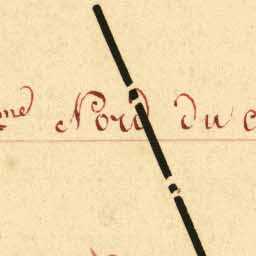 me Nord du c